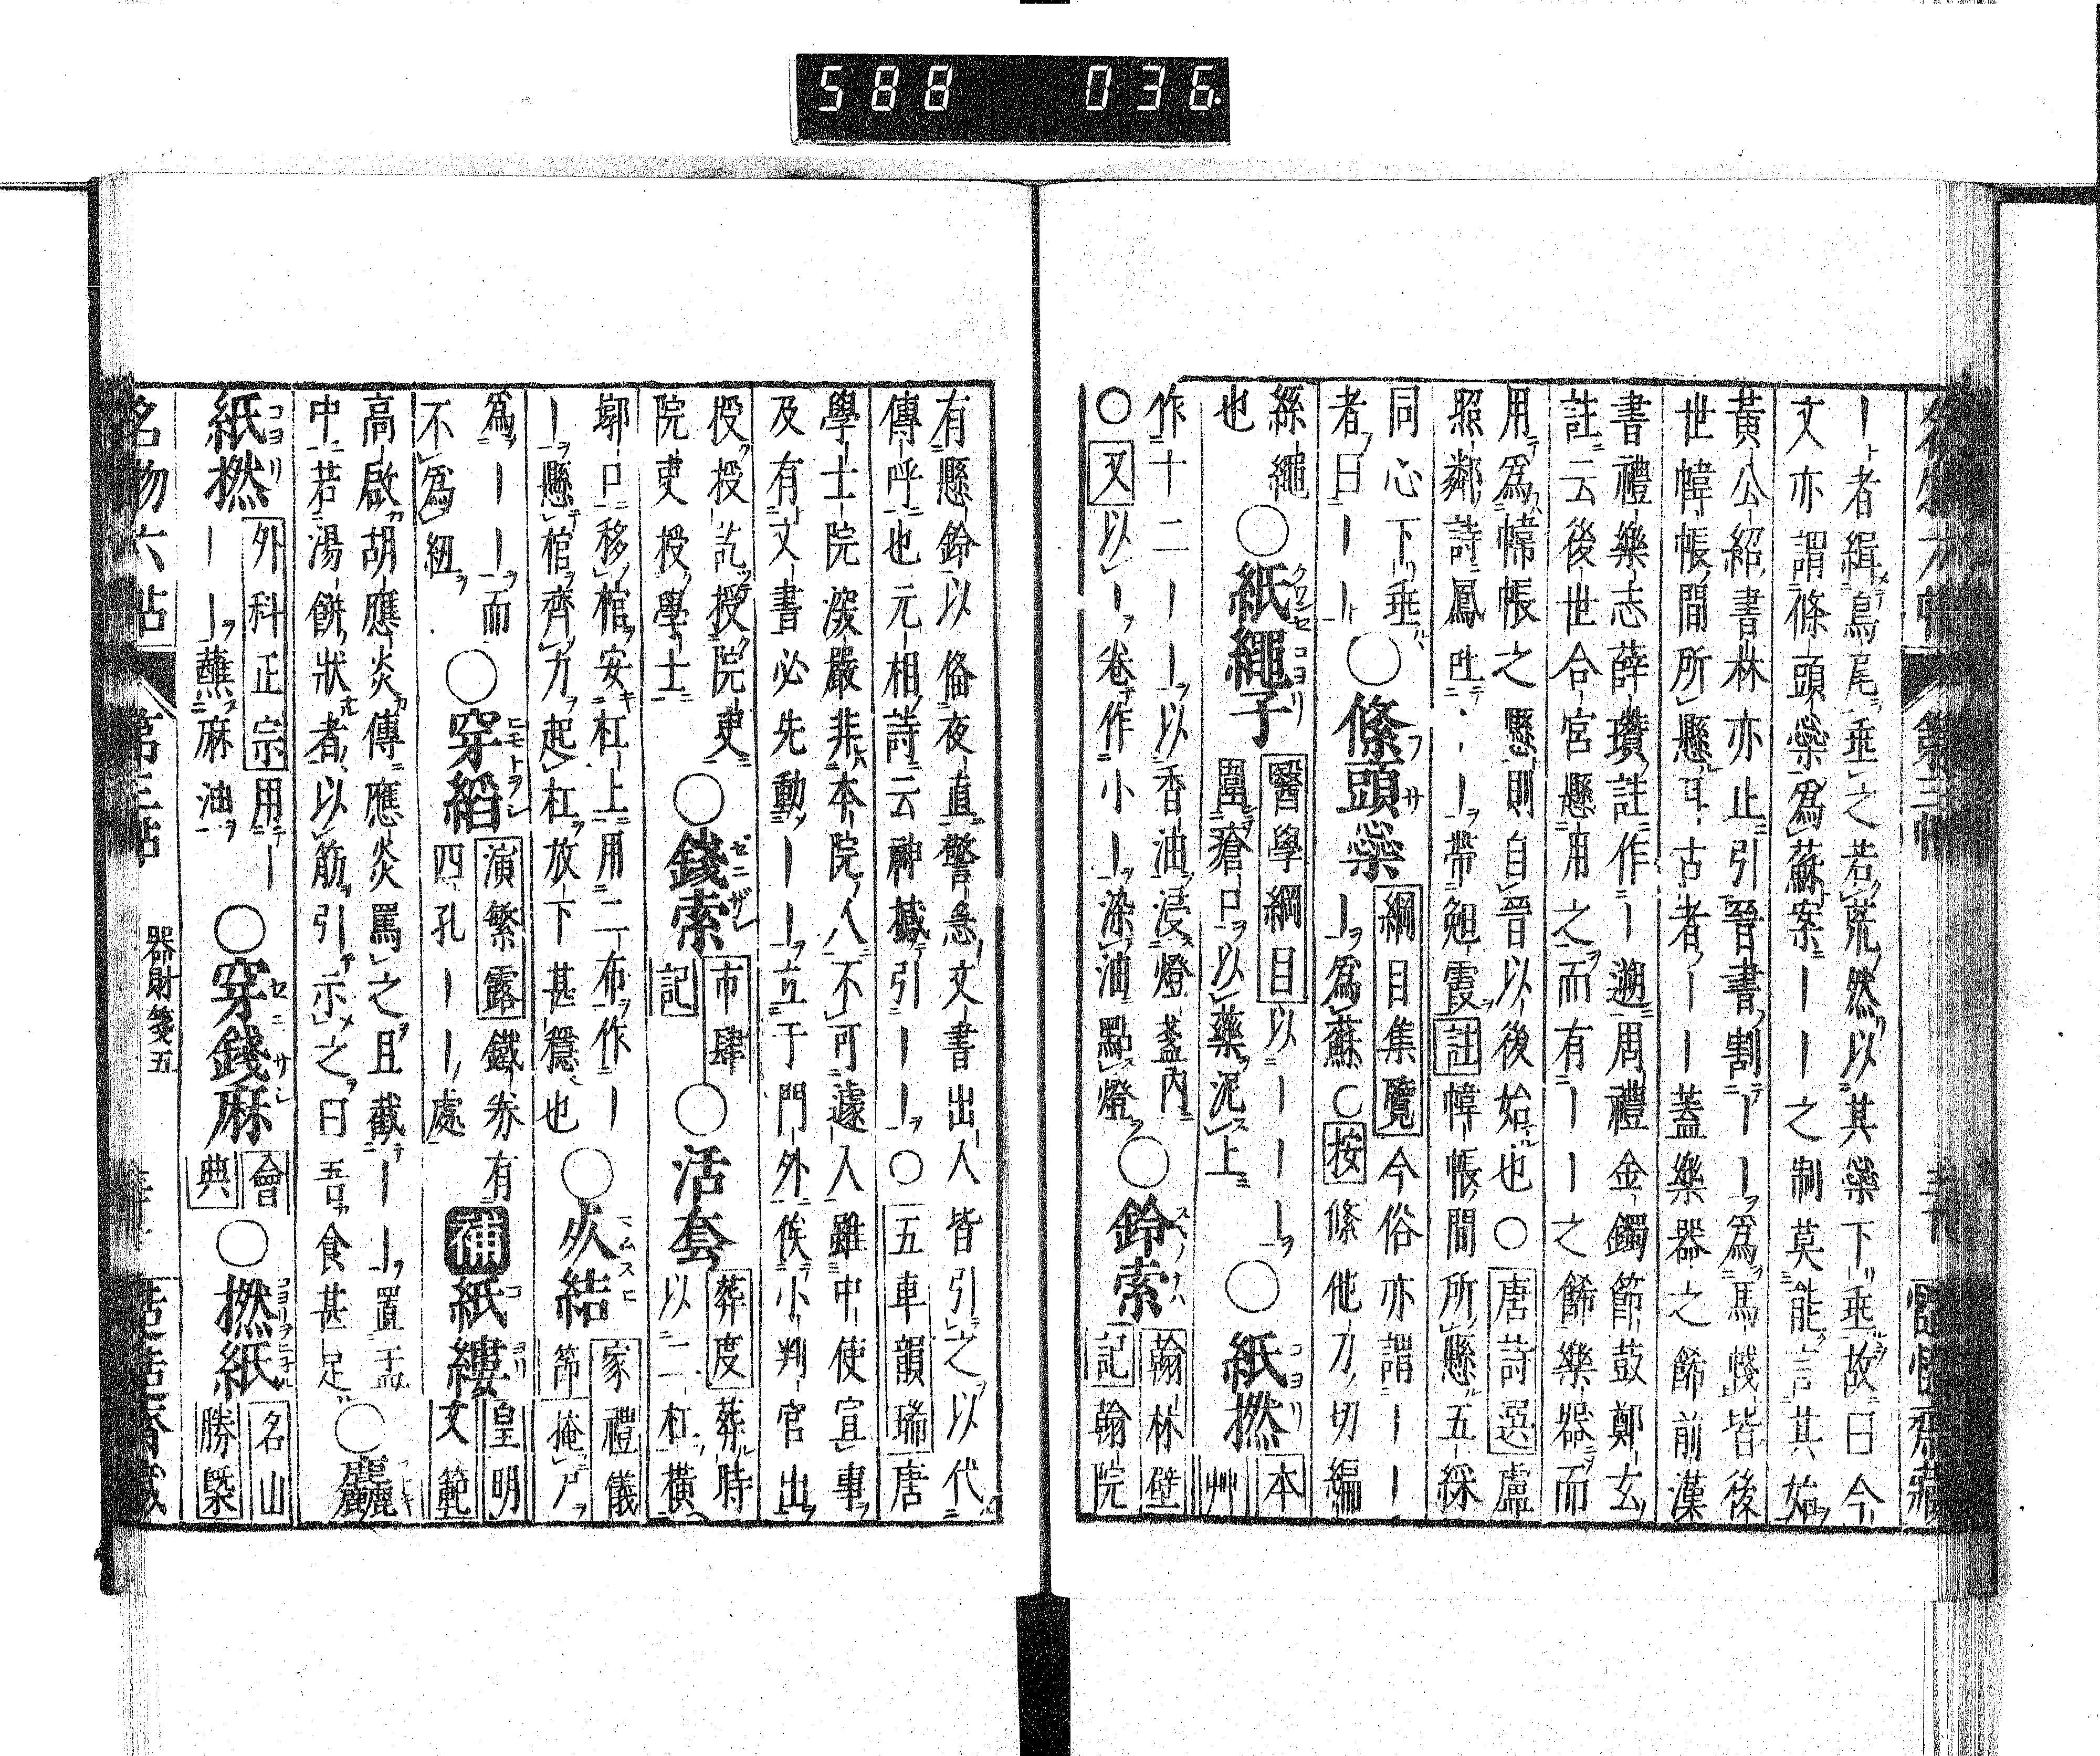 588 036
｜者緝鳥尾垂之若荒然以其蘂下垂故曰今
文亦謂條頭蘂為蘇案｜｜之制莫能言其始
黃公紹書林亦止引晉書割｜｜為馬幩皆後
世幃帳間所懸耳古者｜｜蓋樂器之飾前漢
書禮樂志薛瓚註作｜遡周禮金鐲節鼓鄭玄
註云後世合宮懸用之而有｜｜之飾樂器而
用為幃帳之懸則自晉以後始也○唐詩選盧
照鄰詩鳳吐｜｜帶晚霞註幃帳間所懸五綵
同心下垂
者曰｜｜○條頭蘂綱目集覽今俗亦謂｜｜
｜為蘇○按條他刀切編
絲繩
也○紙繩子醫學綱目以｜｜｜
圍瘡口以藥泥上○紙撚本
艸
作十二｜｜以香油浸燈盞內
○又以｜卷作小｜染油點燈○鈴索翰林壁
記翰院
有懸鈴以備夜直警急文書出入皆引之以代
傳呼也元相詩云神撼引｜｜○五車韻瑞唐
學士院深嚴非本院人不可遽入雖中使宣事
及有文書必先動｜｜立于門外俟小判官出
授授訖授院吏
院吏授學士○錢索市肆
記○活套葬度葬時
以二杠橫
墎口移棺安杠上用二布作｜
｜懸棺齊力起杠放下甚穩也○㸚結家禮儀
節掩尸
為｜｜而
不為紐○穿縚演繁露鐵券有
四孔｜｜處補紙縷皇明
文範
高啟胡應炎傳應炎罵之且截｜｜置盂
中若湯餅狀者以筋引示之曰吾食甚足○麤
紙撚外科正宗用｜
｜｜蘸麻油○穿錢麻會
典○撚紙名山
勝槩
名物六帖 第三帖 器財箋五